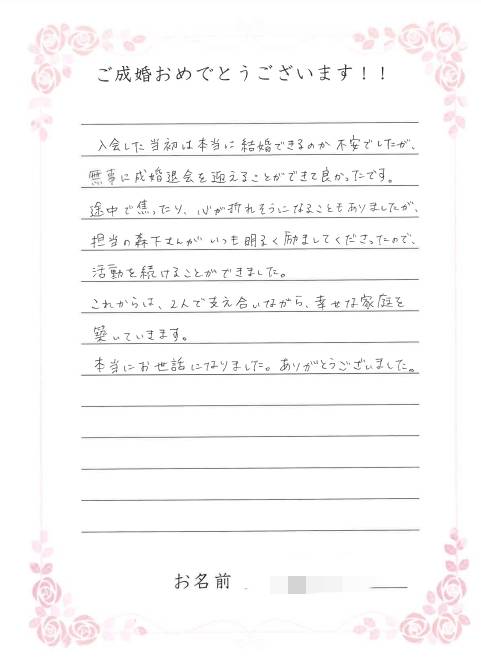 ご成婚おめでとうございます！！
入会した当初は本当に結婚できるのか不安でしたが、
無事に成婚退会を迎えることができて良かったです。
途中で焦ったり、心が折れそうになることもありましたが、
担当の森下さんがいつも明るく励ましてくださったので、
活動を続けることができました。
これからは、2人で支え合いながら、幸せな家庭を
築いていきます。
本当にお世話になりました。ありがとうございました。
お名前